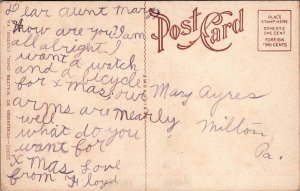 Dear aunt Mary
how are you? I am
all alright. I
want a watch
and a bicycle
for xmas, our
arms are nearly
well
what do you
want for
xmas. Love
from Floyd
Post Card
PLACE
STAMP HERE
DOMESTIC
ONE CENT
FOREIGN
TWO CENTS
Mary Ayres
Milton
Pa.